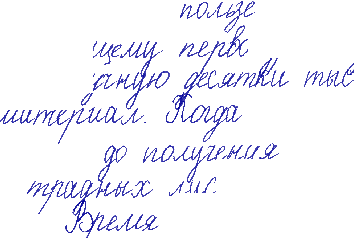 пользе
щему перво
дную десятки тыс
материал. Когда
до получения
традных лис.
Время